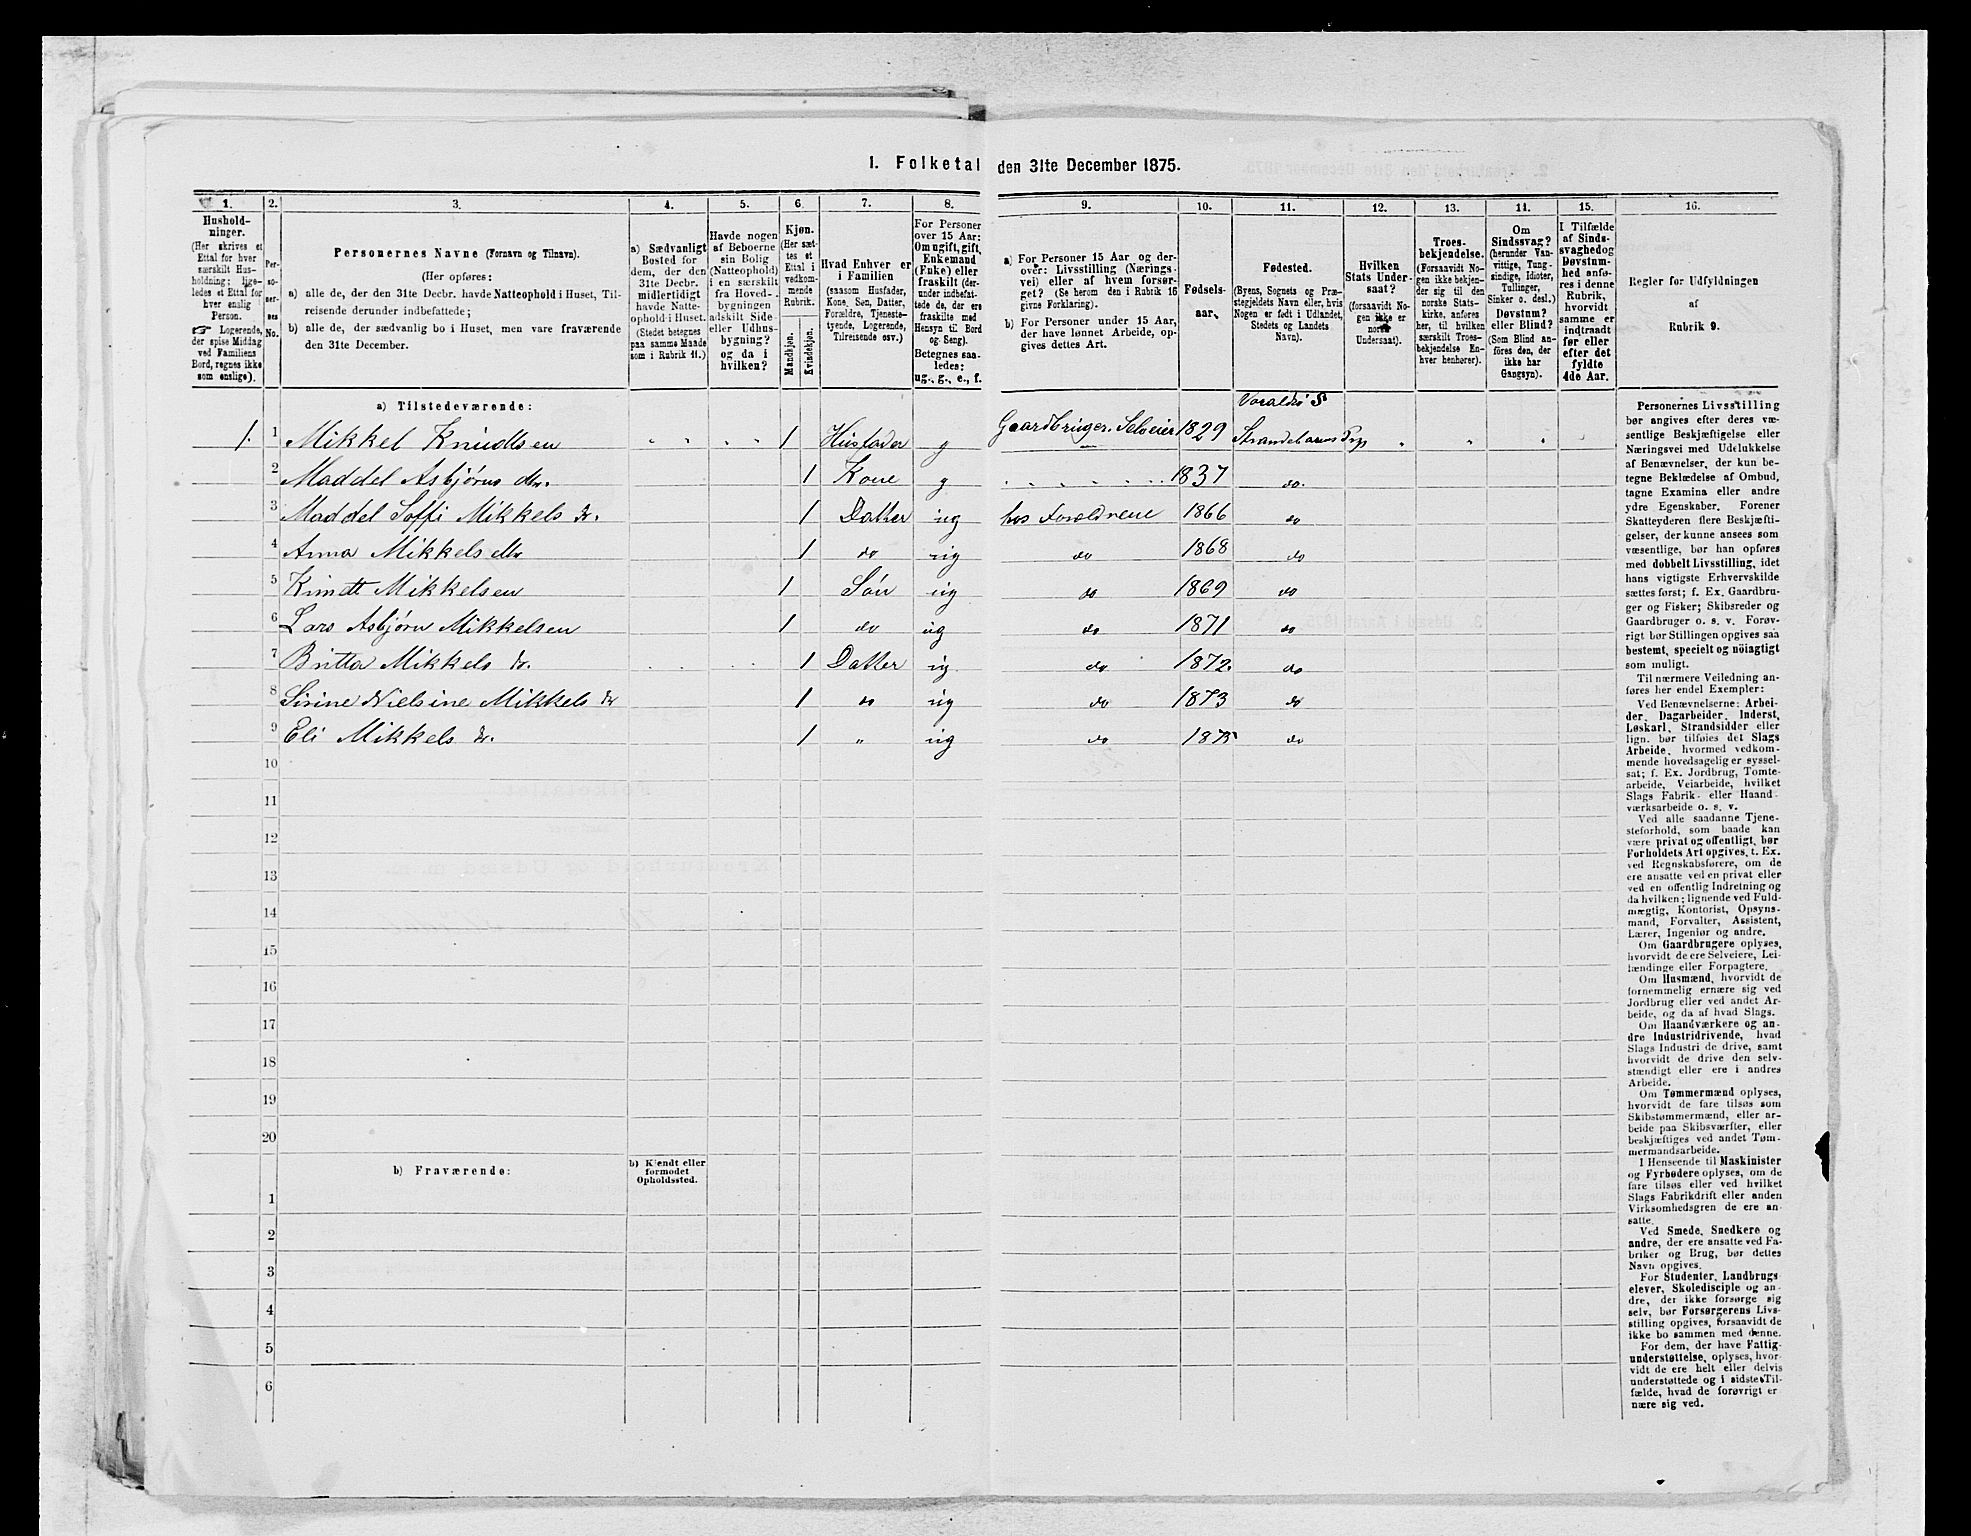 1. Folketal den 31te December 1875.
1.
Hushold-
ninger.
(Her skrives et
Ettal for hver
særskilt Hus-
holdning; lige-
ledes et Ettal for
hver enslig
Person.
☞ Logerende,
der spise Middag
ved Familiens
Bord, regnes ikke
som enslige).
2.
Per-
so-
ner-
nes
No.
3.
Personernes Navne (Fornavn og Tilnavn).
(Her opføres:
a) alle de, der den 31te Decbr. havde Natteophold i Huset, Til-
reisende derunder indbefattede;
b) alle de, der sædvanlig bo i Huset, men vare fraværende
den 31te December.
4.
a) Sædvanligt
Bosted for
dem, der den
31te Decbr.
midlertidigt
havde Natte-
ophold i Huset.
(Stedet betegnes
paa samme Maade
som i Rubrik 11.)
5.
Havde nogen
af Beboerne
sin Bolig
(Natteophold)
i en særskilt
fra Hoved-
bygningen
adskilt Side-
eller Udhus-
bygning?
og da i
hvilken?
6.
Kjøn.
(Her sæt-
tes et
Ettal i
vedkom-
mende
Rubrik.
Mandkjøn.
Kvindekjøn.
7.
Hvad Enhver er
i Familien
(saasom Husfader,
Kone, Søn, Datter,
Forældre, Tjeneste-
tyende, Logerende,
Tilreisende osv.)
8.
For Personer
over 15 Aar:
Om ugift, gift,
Enkemand
(Enke) eller
fraskilt (der-
under indbefat-
tede de, der ere
fraskilte med
Hensyn til Bord
og Seng).
Betegnes saa-
ledes:
ug., g., e., f.
9.
a) For Personer 15 Aar og der-
over: Livsstilling (Nærings-
vei) eller af hvem forsør-
get? (Se herom den i Rubrik 16
givne Forklaring).
b) For Personer under 15 Aar,
der have lønnet Arbeide, op-
gives dettes Art.
10.
Fødsels-
aar.
11.
Fødested.
(Byens, Sognets og Præ-
stegjeldets Navn eller, hvis
Nogen er født i Udlandet,
Stedets og Landets
Navn).
12.
Hvilken
Stats Under-
saat?
(forsaavidt No-
gen ikke er
norsk
Undersaat).
13.
Troes-
bekjendelse.
(Forsaavidt No-
gen ikke bekjen-
der sig til den
norske Stats-
kirke, anføres
her, til hvilken
særskilt Troes-
bekjendelse En-
hver henhører).
14.
Om
Sindssvag?
(herunder Van-
vittige, Tung-
sindige, Idioter,
Tullinger,
Sinker o. desl.)
Døvstum?
eller Blind?
(Som Blind an-
føres den, der
ikke har
Gangsyn).
15.
I Tilfælde
af Sinds-
svaghed og
Døvstum-
hed anfø-
res i denne
Rubrik,
hvorvidt
samme er
indtraadt
før eller
efter det
fyldte
4de Aar.
16.
Regler for Udfyldningen
af
Rubrik 9.
a) Tilstedeværende:
Varaldsø S
1. 1 Mikkel Knudtsen " " " " 1 Husfader g Gaardbruger. Selveier 1829 Strandebarms Prp " " " "
2 Maddel Asbjørns dtr. 1 Kone g 1837 do.
3 Maddel Soffi Mikkels dr. 1 Datter ug hos Foreldrene 1866 do
4 Anna Mikkels dtr 1 do ug do 1868 do
5 Knudt Mikkelsen 1 Søn ug do 1869 do
6 Lars Asbjørn Mikkelsen 1 do ug do 1871 do
7 Britta Mikkels dr. 1 Datter ug. do 1872. do
8 Sirine Nielsine Mikkels dr 1 do ug do 1873 do
9 Eli Mikkels dr. 1 " ug do 1875 do
10
11
12
13
14
15
16
17
18
19
20
b) Fraværende:
b) Kjendt eller
formodet
Opholdssted.
1
2
3
4
5
6
Personernes Livsstilling
bør angives efter deres væ-
sentlige Beskjæftigelse eller
Næringsvei med Udelukkelse
af Benævnelser, der kun be-
tegne Beklædelse af Ombud,
tagne Examina eller andre
ydre Egenskaber. Forener
Skatteyderen flere Beskjæfti-
gelser, der kunne ansees som
væsentlige, bør han opføres
med dobbelt Livsstilling, idet
hans vigtigste Erhvervskilde
sættes først; f. Ex. Gaardbru-
ger og Fisker; Skibsreder og
Gaardbruger o. s. v. Forøv-
rigt bør Stillingen opgives saa
bestemt, specielt og nöiagtigt
som muligt.
Til nærmere Veiledning an-
føres her endel Exempler:
Ved Benævnelserne: Arbei-
der, Dagarbeider, Inderst,
Løskarl, Strandsidder eller
lign. bør tilføies det Slags
Arbeide, hvormed vedkom-
mende hovedsagelig er syssel-
sat; f. Ex. Jordbrug, Tomte-
arbeide, Veiarbeide, hvilket
Slags Fabrik- eller Haand-
værksarbeide o. s. v.
Ved alle saadanne Tjene-
steforhold, som baade kan
være privat og offentligt, bør
Forholdets Art opgives, t. Ex.
ved Regnskabsførere, om de
ere ansatte ved en privat eller
ved en offentlig Indretning og
da hvilken; lignende ved Fuld-
mægtig, Kontorist, Opsyns-
mand, Forvalter, Assistent,
Lærer, Ingeniør og andre.
Om Gaardbrugere oplyses,
hvorvidt de ere Selveiere, Lei-
lændinge eller Forpagtere.
Om Husmænd, hvorvidt de
fornemmelig ernære sig ved
Jordbrug eller ved andet Ar-
beide, og da af hvad Slags.
Om Haandværkere og an-
dre Industridrivende, hvad
Slags Industri de drive, samt
hvorvidt de drive den selv-
stændigt eller ere i andres
Arbeide.
Om Tømmermænd oplyses,
hvorvidt de fare tilsøs som
Skibstømmermænd, eller ar-
beide paa Skibsværfter, eller
beskjæftiges ved andet Tøm-
mermandsarbeide.
I Henseende til Maskinister
og Fyrbødere oplyses, om de
fare tilsøs eller ved hvilket
Slags Fabrikdrift eller anden
Virksomhedsgren de ere an-
satte.
Ved Smede, Snedkere og
andre, der ere ansatte ved Fa-
briker og Brug, bør dettes
Navn opgives.
For Studenter, Landbrugs-
elever, Skoledisciple og an-
dre, der ikke forsørge sig
selv, bør Forsørgerens Livs-
stilling opgives, forsaavidt de
ikke bo sammen med denne.
For dem, der have Fattig-
understøttelse, oplyses, hvor-
vidt de ere helt eller delvis
understøttede og i sidste Til-
fælde, hvad de forøvrigt er-
nære sig ved.